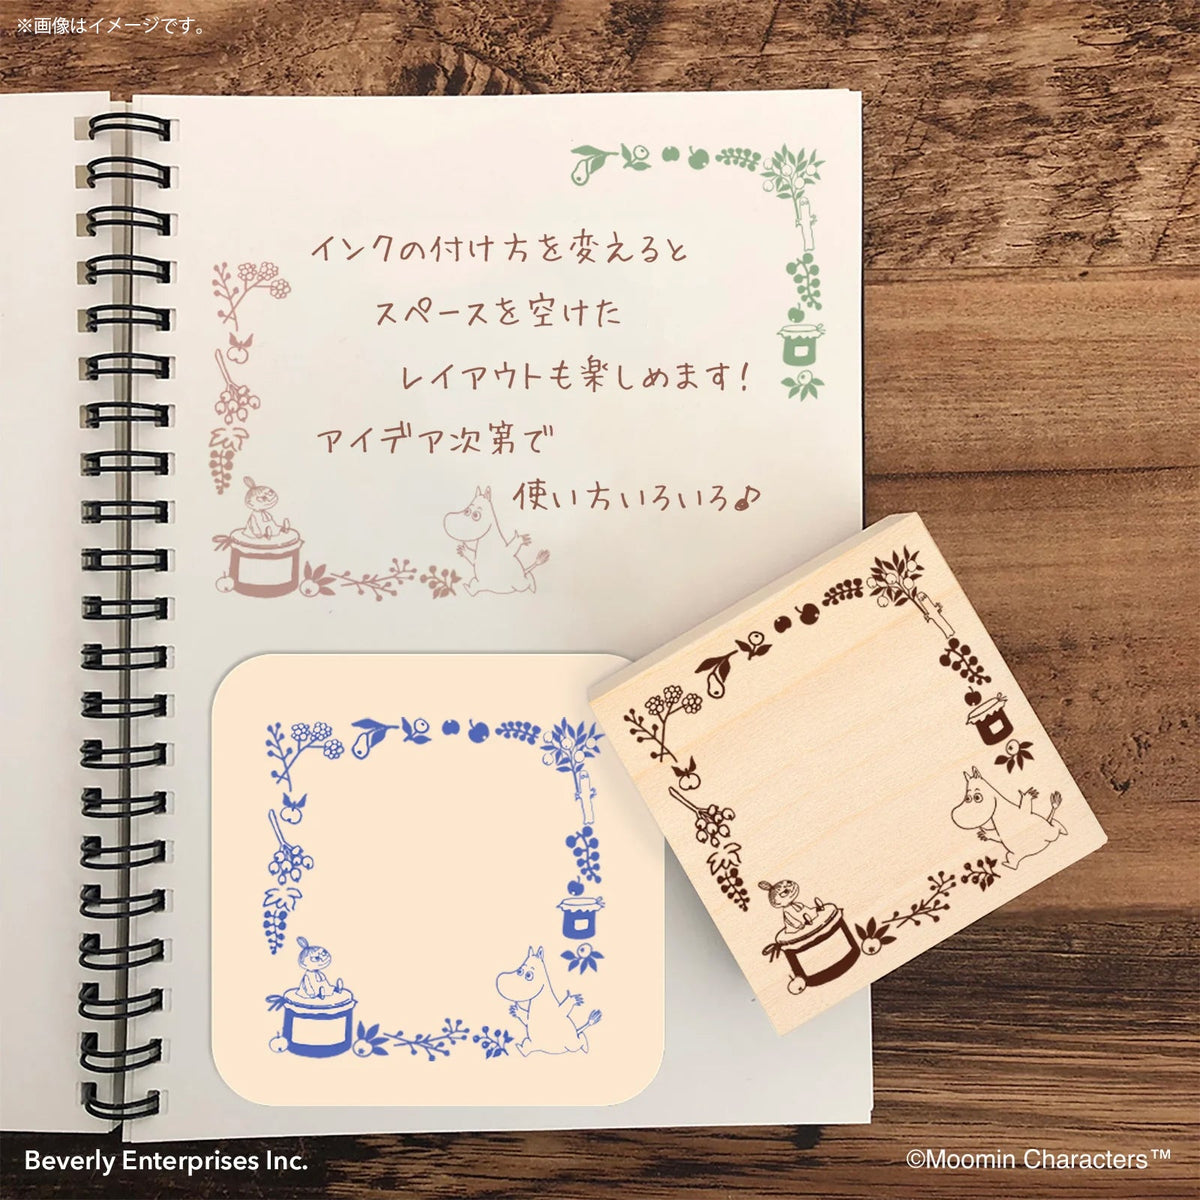 ※画像はイメージです。
インクの付け方を変えると
スペースを空けた
レイアウトも楽しめます!
アイデア次第で
使い方いろいろ♪
Beverly Enterprises Inc.
©Moomin Characters™